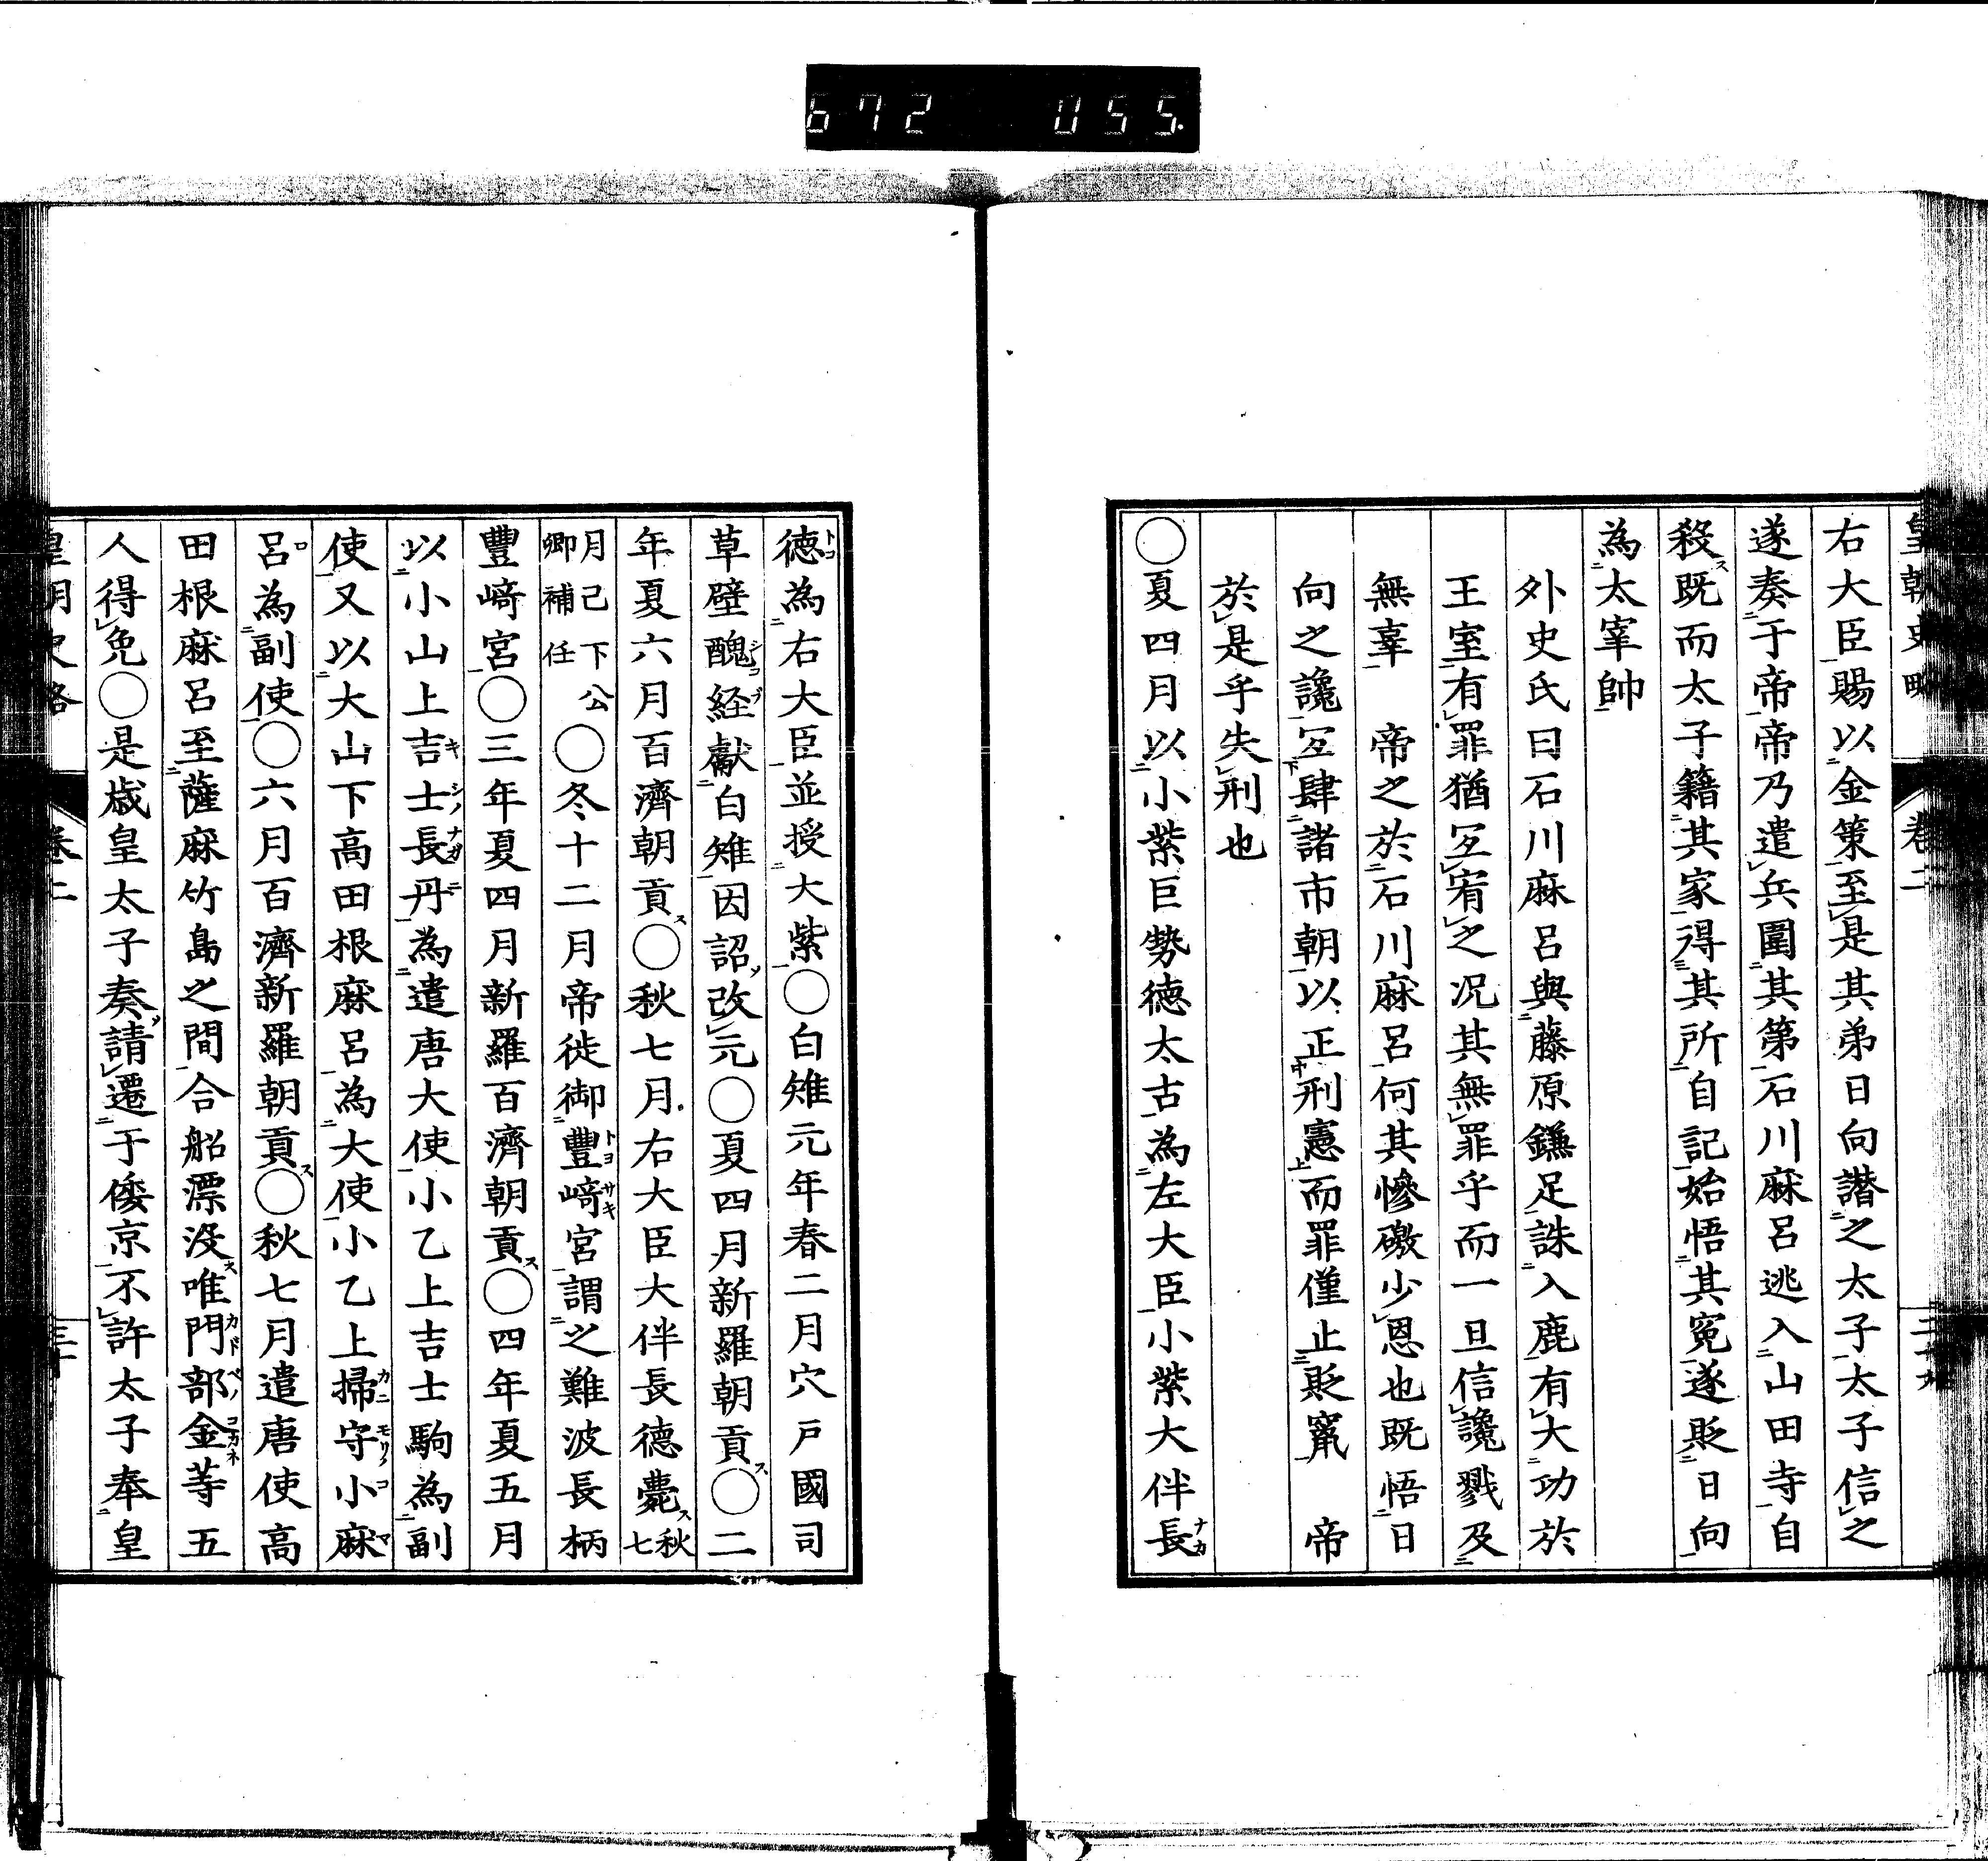 672 055.
皇朝史略 巻二
右大臣賜以金策至是其弟日向譖之太子太子信之
遂奏于帝帝乃遣兵圍其第石川麻呂逃入山田寺自
殺既而太子籍其家得其所自記始悟其寃遂貶日向
為太宰帥
外史氏曰石川麻呂與藤原鎌足誅入鹿有大功於
王室有罪猶宜宥之况其無罪乎而一旦信讒戮及
無辜　帝之於石川麻呂何其慘礉少恩也既悟日
向之讒宜肆諸市朝以正刑憲而罪僅止貶竄　帝
於是乎失刑也
○夏四月以小紫巨勢德太古為左大臣小紫大伴長
德為右大臣並授大紫○白雉元年春二月穴戸國司
草壁醜経獻白雉因詔改元○夏四月新羅朝貢○二
年夏六月百濟朝貢○秋七月右大臣大伴長德薨秋七
月己下公卿補任○冬十二月帝徙御豐﨑宮謂之難波長柄
豐﨑宮○三年夏四月新羅百濟朝貢○四年夏五月
以小山上吉士長丹為遣唐大使小乙上吉士駒為副
使又以大山下高田根麻呂為大使小乙上掃守小麻
呂為副使○六月百濟新羅朝貢○秋七月遣唐使高
田根麻呂至薩麻竹島之間合船漂沒唯門部金等五
人得免○是歳皇太子奏請遷于倭京不許太子奉皇
皇朝史略 巻二